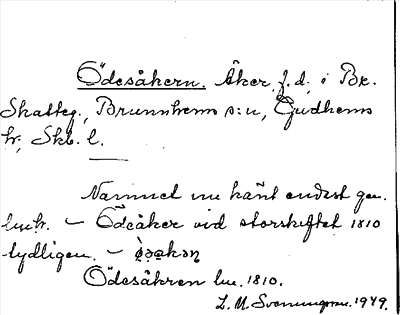 Ödesåkern. Åker f.d. i Bx.
Skatteg., Brunnhems s:n, Gudhems
hr, Skb. l.
Namnet nu känt endast gen.
lmkr. – Ödeåker vid storskiftet 1810
tydligen. –
Ödesåkren lm. 1810.
L. M. Svenungsson. 1949.